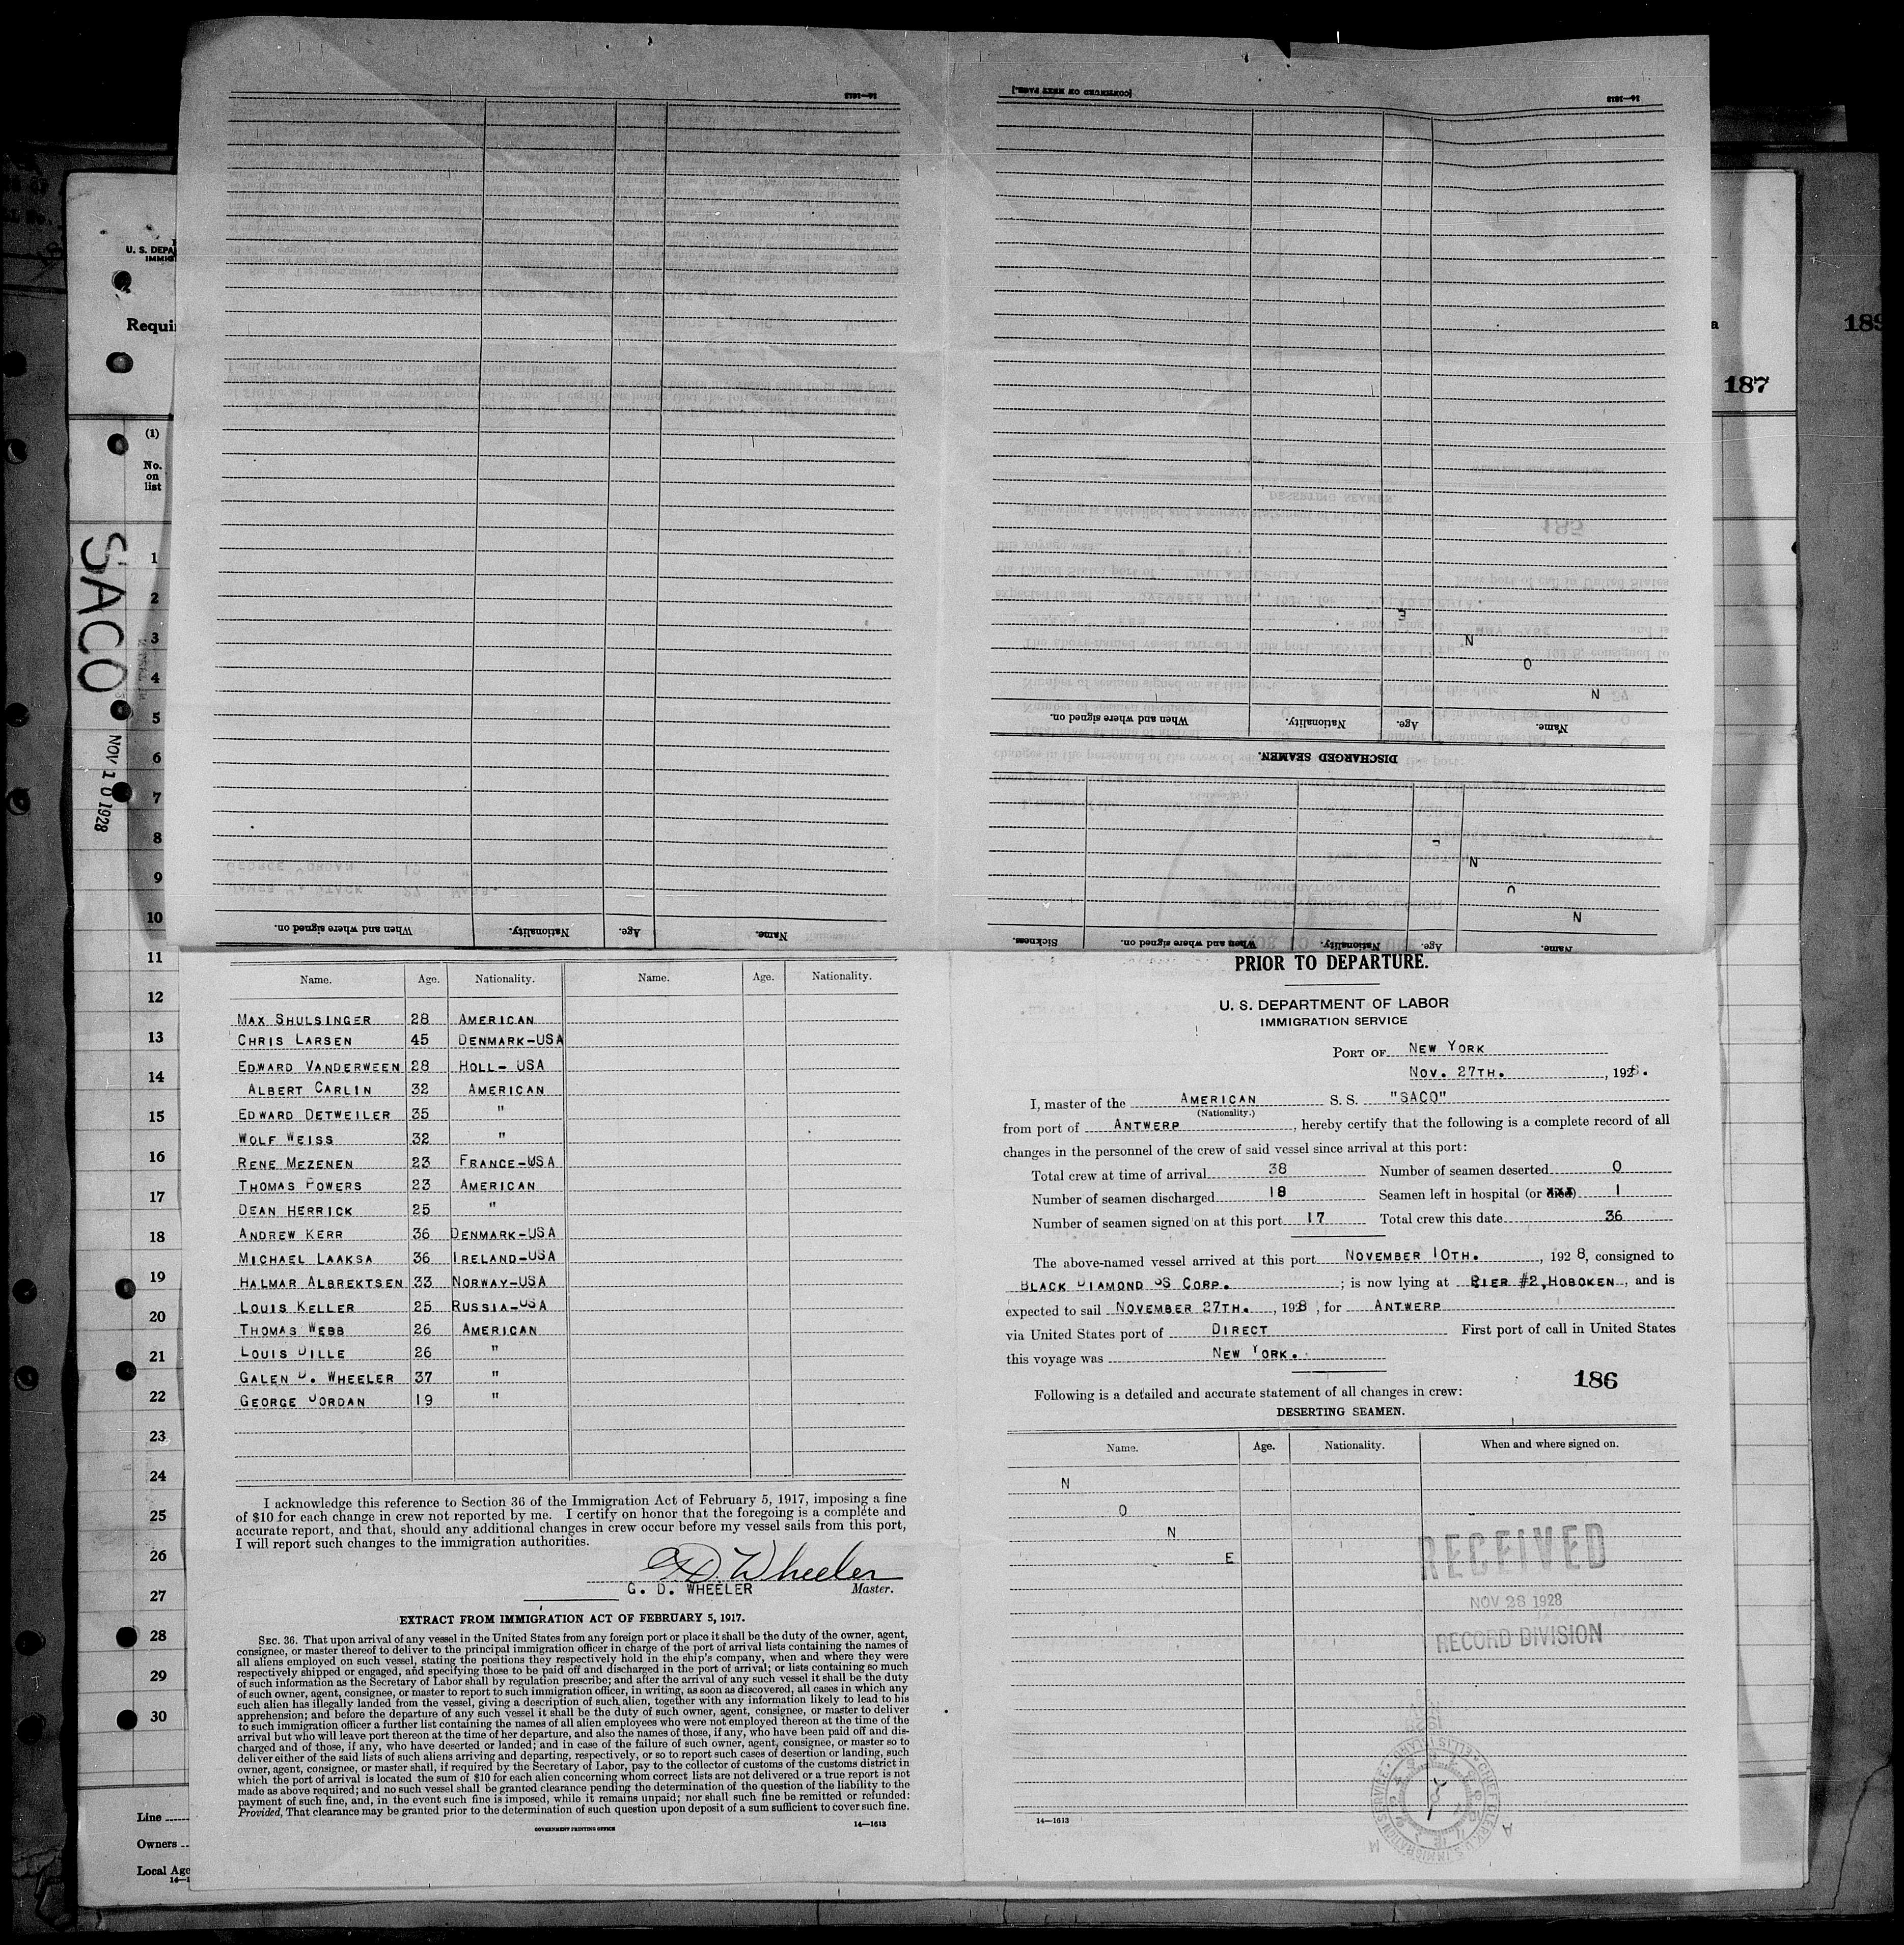 U. S. DEPA
IMMIG
Requi
(1)
No.
on
list
SACO
NOV 10 1928
1
2
3
4
5
6
7
8
9
10
11
12
13
14
15
16
17
18
19
20
21
22
23
24
25
26
27
28
29
30
Line
Owners
Local Age
14—1
187
189
14—1613
Name. Age. Nationality. When and where signed on.
[CONTINUED ON NEXT PAGE.]
14—1613
Name. Age. Nationality. When and where signed on. Sickness.
N
O
N
DISCHARGED SEAMEN.
Name. Age. Nationality. When and where signed on.
N
O
N
E
Name. Age. Nationality. Name. Age. Nationality.
MAX SHULSINGER 28 AMERICAN
CHRIS LARSEN 45 DENMARK-USA
EDWARD VANDERWEEN 28 HOLL- USA
ALBERT CARLIN 32 AMERICAN
EDWARD DETWEILER 35 "
WOLF WEISS 32 "
RENE MEZENEN 23 FRANCE-USA
THOMAS POWERS 23 AMERICAN
DEAN HERRICK 25 "
ANDREW KERR 36 DENMARK-USA
MICHAEL LAAKSA 36 IRELAND-USA
HALMAR ALBREKTSEN 33 NORWAY-USA
LOUIS KELLER 25 RUSSIA-USA
THOMAS WEBB 26 AMERICAN
LOUIS DILLE 26 "
GALEN D. WHEELER 37 "
GEORGE JORDAN 19 "
I acknowledge this reference to Section 36 of the Immigration Act of February 5, 1917, imposing a fine
of $10 for each change in crew not reported by me. I certify on honor that the foregoing is a complete and
accurate report, and that, should any additional changes in crew occur before my vessel sails from this port,
I will report such changes to the immigration authorities.
G. D. Wheeler
G. D. WHEELER Master.
EXTRACT FROM IMMIGRATION ACT OF FEBRUARY 5, 1917.
SEC. 36. That upon arrival of any vessel in the United States from any foreign port or place it shall be the duty of the owner, agent,
consignee, or master thereof to deliver to the principal immigration officer in charge of the port of arrival lists containing the names of
all aliens employed on such vessel, stating the positions they respectively hold in the ship's company, when and where they were
respectively shipped or engaged, and specifying those to be paid off and discharged in the port of arrival; or lists containing so much
of such information as the Secretary of Labor shall by regulation prescribe; and after the arrival of any such vessel it shall be the duty
of such owner, agent, consignee, or master to report to such immigration officer, in writing, as soon as discovered, all cases in which any
such alien has illegally landed from the vessel, giving a description of such alien, together with any information likely to lead to his
apprehension; and before the departure of any such vessel it shall be the duty of such owner, agent, consignee, or master to deliver
to such immigration officer a further list containing the names of all alien employees who were not employed thereon at the time of the
arrival but who will leave port thereon at the time of her departure, and also the names of those, if any, who have been paid off and dis-
charged and of those, if any, who have deserted or landed; and in case of the failure of such owner, agent, consignee, or master so to
deliver either of the said lists of such aliens arriving and departing, respectively, or so to report such cases of desertion or landing, such
owner, agent, consignee, or master shall, if required by the Secretary of Labor, pay to the collector of customs of the customs district in
which the port of arrival is located the sum of $10 for each alien concerning whom correct lists are not delivered or a true report is not
made as above required; and no such vessel shall be granted clearance pending the determination of the question of the liability to the
payment of such fine, and, in the event such fine is imposed, while it remains unpaid; nor shall such fine be remitted or refunded:
Provided, That clearance may be granted prior to the determination of such question upon deposit of a sum sufficient to cover such fine.
GOVERNMENT PRINTING OFFICE 14—1613
PRIOR TO DEPARTURE.
U. S. DEPARTMENT OF LABOR
IMMIGRATION SERVICE
PORT OF NEW YORK
NOV. 27TH. , 1928.
I, master of the AMERICAN S. S. "SACO"
(Nationality.)
from port of ANTWERP , hereby certify that the following is a complete record of all
changes in the personnel of the crew of said vessel since arrival at this port:
Total crew at time of arrival 38 Number of seamen deserted 0
Number of seamen discharged 18 Seamen left in hospital (or died) 1
Number of seamen signed on at this port 17 Total crew this date 36
The above-named vessel arrived at this port NOVEMBER 10TH. , 1928, consigned to
BLACK DIAMOND SS CORP. ; is now lying at PIER #2, HOBOKEN , and is
expected to sail NOVEMBER 27TH. , 1928, for ANTWERP
via United States port of DIRECT First port of call in United States
this voyage was NEW YORK.
186
Following is a detailed and accurate statement of all changes in crew:
DESERTING SEAMEN.
Name. Age. Nationality. When and where signed on.
N
O
N
E
RECEIVED
NOV 28 1928
RECORD DIVISION
CHIEF CLERK U.S. IMMIGRATION SERVICE • ELLIS ISLAND
14—1613